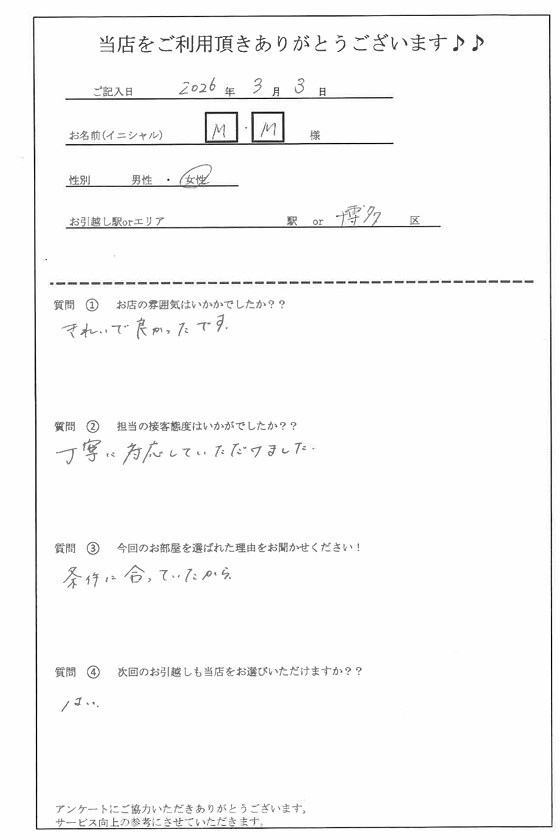 当店をご利用頂きありがとうございます♪♪
ご記入日 2026 年 3 月 3 日
お名前(イニシャル) M ・ M 様
性別 男性 ・ 女性
お引越し駅orエリア 駅 or 博多 区
質問 ① お店の雰囲気はいかかでしたか??
きれいで良かったです。
質問 ② 担当の接客態度はいかがでしたか??
丁寧に対応していただけました.
質問 ③ 今回のお部屋を選ばれた理由をお聞かせください!
条件に合っていたから.
質問 ④ 次回のお引越しも当店をお選びいただけますか??
はい.
アンケートにご協力いただきありがとうございます。
サービス向上の参考にさせていただきます。